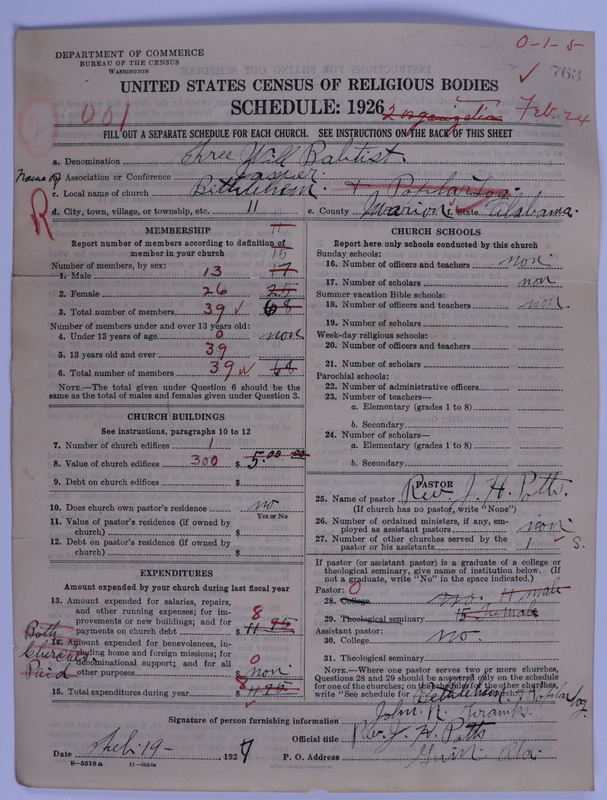 0-1-5
DEPARTMENT OF COMMERCE
BUREAU OF THE CENSUS
WASHINGTON
✓ 763
UNITED STATES CENSUS OF RELIGIOUS BODIES
001 SCHEDULE: 1926 2 organizations Feb. 24
FILL OUT A SEPARATE SCHEDULE FOR EACH CHURCH. SEE INSTRUCTIONS ON THE BACK OF THIS SHEET
a. Denomination Three Will Babtist
Name of b. Association or Conference Jasper
c. Local name of church Bithlehem + Poplar Log
R d. City, town, village, or township, etc. 11 e. County Marion f. State Alabama.
MEMBERSHIP
Report number of members according to definition of member in your church
Number of members, by sex:
1. Male 13 17
2. Female 26
3. Total number of members 39 ✓ 68
Number of members under and over 13 years old:
4. Under 13 years of age 0 non
5. 13 years old and over 39
6. Total number of members 39 68
NOTE.—The total given under Question 6 should be the
same as the total of males and females given under Question 3.
CHURCH BUILDINGS
See instructions, paragraphs 10 to 12
7. Number of church edifices 1
8. Value of church edifices 300 $ 5.00 00
9. Debt on church edifices $
10. Does church own pastor's residence no
Yes or No
11. Value of pastor's residence (if owned by
church) $
12. Debt on pastor's residence (if owned by
church) $
EXPENDITURES
Amount expended by your church during last fiscal year
13. Amount expended for salaries, repairs,
and other running expenses; for im-
provements or new buildings; and for
payments on church debt 8 $ 11 95
Both Churches Paid
14. Amount expended for benevolences, in-
cluding home and foreign missions; for
denominational support; and for all
other purposes 0 non
15. Total expenditures during year 8 $ 11.95
CHURCH SCHOOLS
Report here only schools conducted by this church
Sunday schools:
16. Number of officers and teachers non
17. Number of scholars non
Summer vacation Bible schools:
18. Number of officers and teachers non
19. Number of scholars
Week-day religious schools:
20. Number of officers and teachers
21. Number of scholars
Parochial schools:
22. Number of administrative officers
23. Number of teachers—
a. Elementary (grades 1 to 8)
b. Secondary
24. Number of scholars—
a. Elementary (grades 1 to 8)
b. Secondary
PASTOR
25. Name of pastor Rev. J. H. Potts.
(If church has no pastor, write "None")
26. Number of ordained ministers, if any, em-
ployed as assistant pastors non
27. Number of other churches served by the
pastor or his assistants 1 S.
If pastor (or assistant pastor) is a graduate of a college or
theological seminary, give name of institution below. (If
not a graduate, write "No" in the space indicated.)
Pastor: 0
28. College no. 11 male
29. Theological seminary 15 Female
Assistant pastor:
30. College no.
31. Theological seminary
NOTE.—Where one pastor serves two or more churches,
Questions 28 and 29 should be answered only on the schedule
for one of the churches; on the schedule for the other churches,
write "See schedule for Bethlehem church.) Poplar Log.
Signature of person furnishing information John R.
Official title Rev. J. H. Potts
Date Feb. 19- , 1927 P. O. Address Guin Ala.
8—5518a 11—9024a